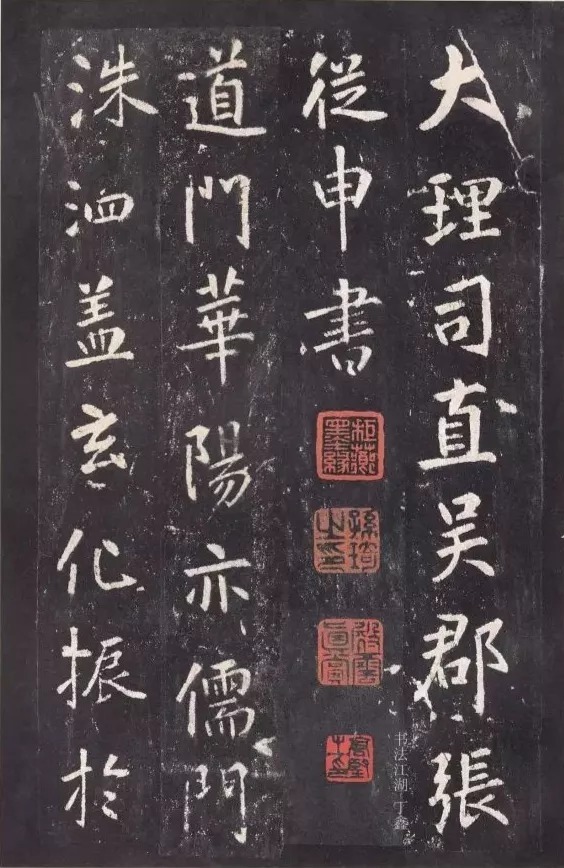 大理司直吴郡張
從申書
道門華陽亦儒門
洙泗盖玄化振於
孫琦之印
书法江湖 丁鑫